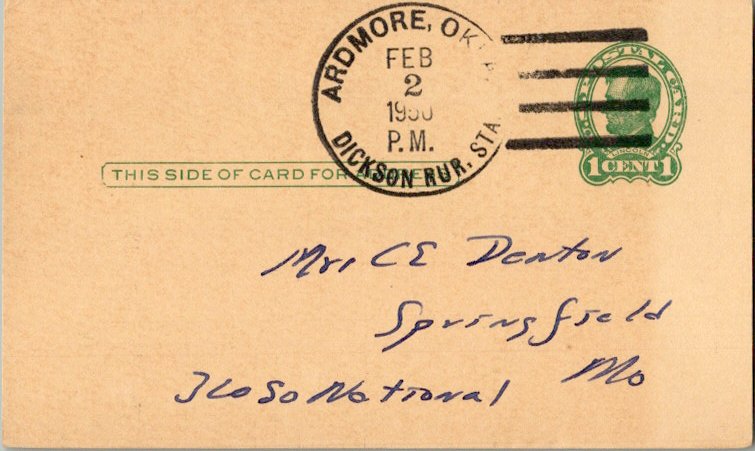 ARDMORE, OKLA.
FEB
2
1950
P.M.
DICKSON RUR. STA.
LINCOLN
1 CENT 1
THIS SIDE OF CARD FOR ADDRESS
Mrs CE Denton
Springfield
Mo
So National